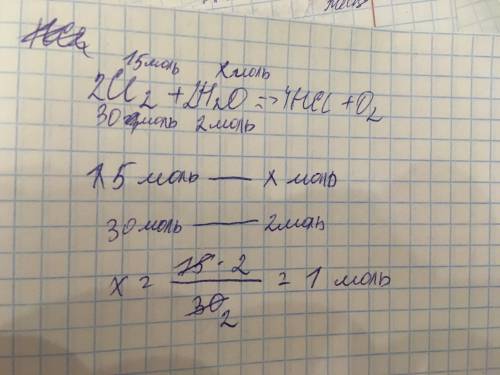 15моль х моль
2Cl2 + 2H2O => 4HCl + O2
30 моль 2 моль
15 моль — х моль
30 моль — 2моль
x = 15 · 2 / 30 2 = 1 моль